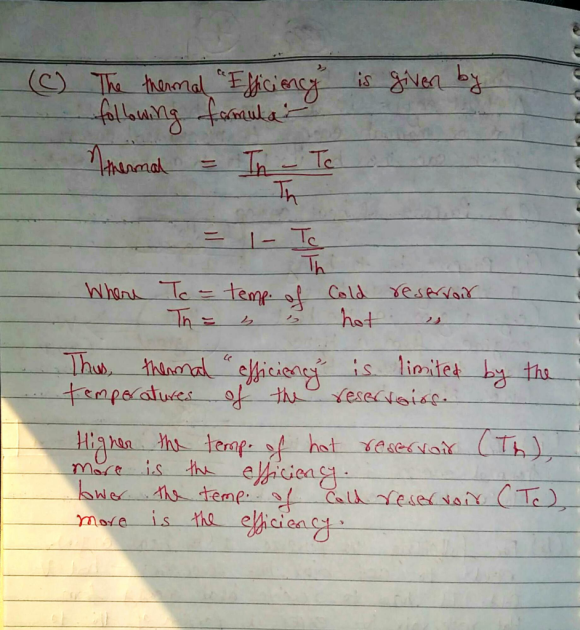 (C) The thermal "Efficiency" is given by
following formula:-
ηthermal = Th - Tc / Th
= 1 - Tc / Th
Where Tc = temp. of cold reservoir
Th = " " hot "
Thus, thermal "efficiency" is limited by the
temperatures of the reservoirs.
Higher the temp. of hot reservoir (Th),
more is the efficiency.
lower the temp. of cold reservoir (Tc),
more is the efficiency.